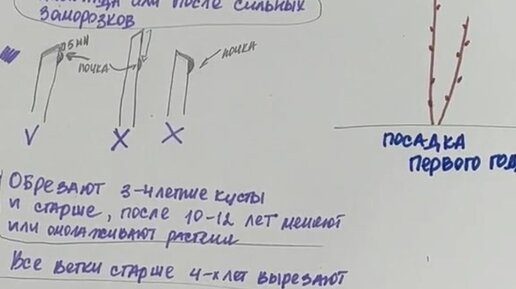 или после сильных
заморозков
5мм
почка
почка
V X X
посадка
первого год
Обрезают 3-4летние кусты
и старше, после 10-12 лет меняют
или омолаживают растения
Все ветки старше 4-х лет вырезают